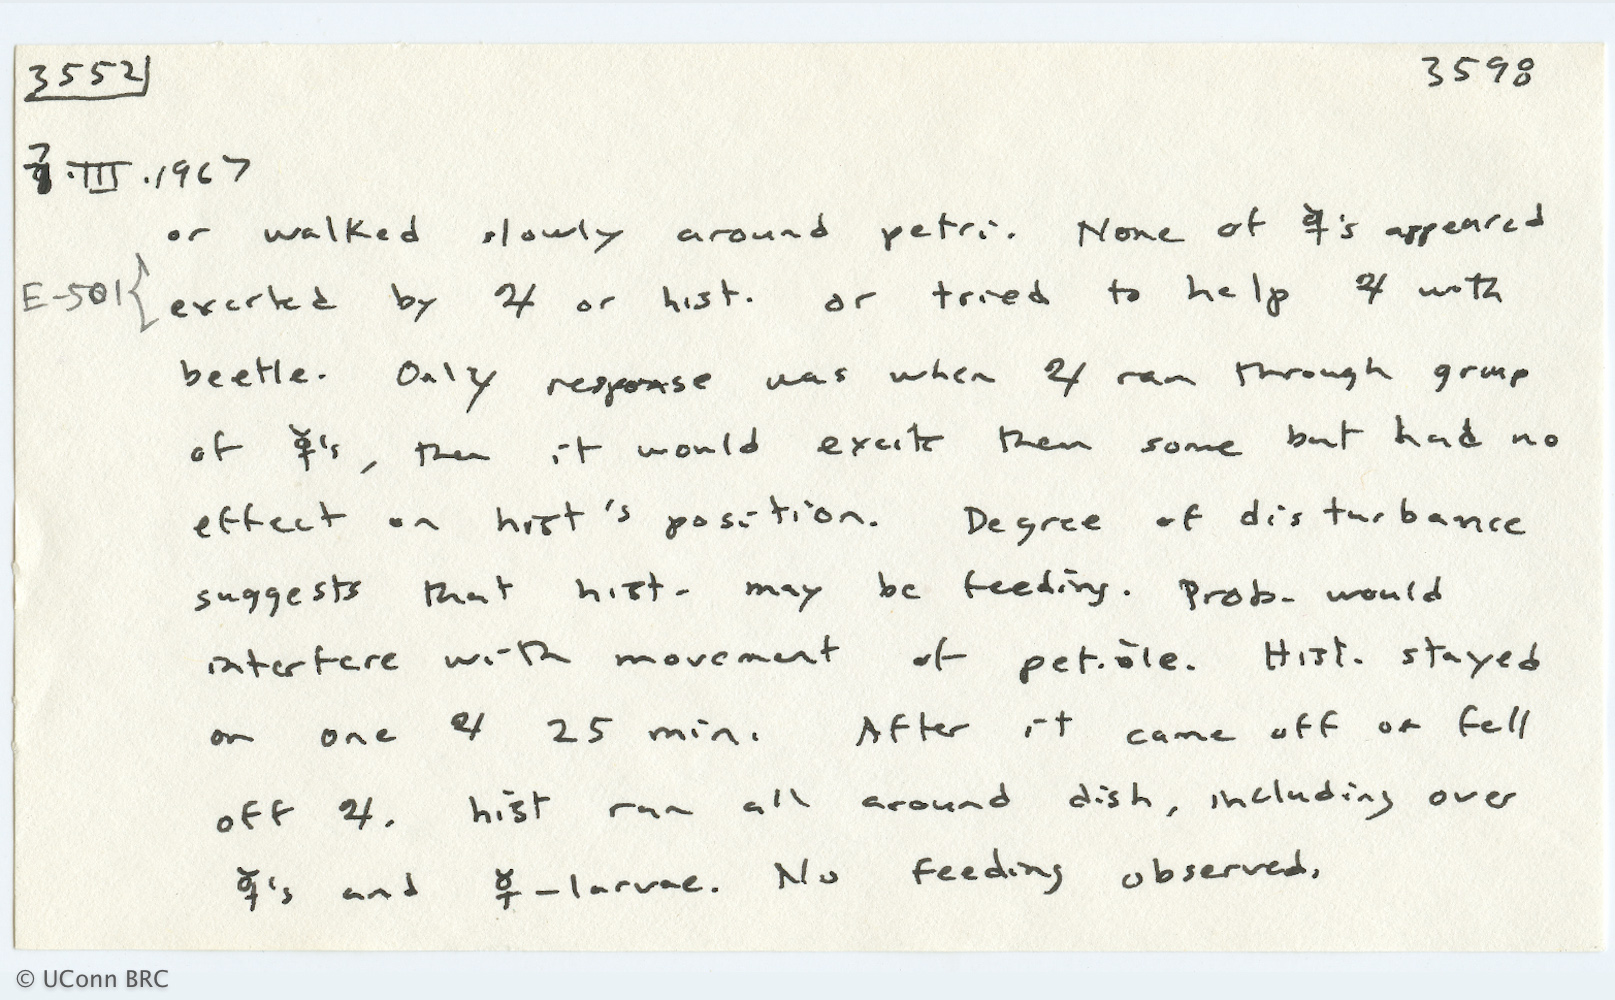 3552
3598
7.III.1967
or walked slowly around petri. None of ☿'s appeared
E-501{ excited by ♃ or hist. or tried to help ♃ with
beetle. Only response was when ♃ ran through group
of ☿'s, then it would excite them some but had no
effect on hist's position. Degree of disturbance
suggests that hist. may be feeding. Prob. would
interfere with movement of petiole. Hist. stayed
on one ♃ 25 min. After it came off or fell
off ♃, hist ran all around dish, including over
☿'s and ☿-larvae. No feeding observed.
© UConn BRC